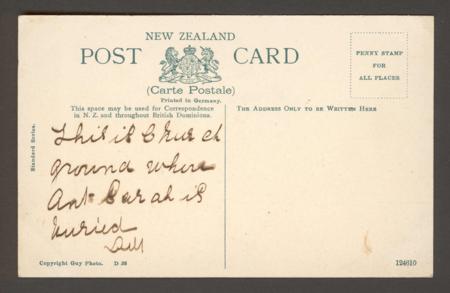 NEW ZEALAND
POST CARD
(Carte Postale)
Printed in Germany.
PENNY STAMP
FOR
ALL PLACES
This space may be used for Correspondence
in N. Z. and throughout British Dominions.
THE ADDRESS ONLY TO BE WRITTEN HERE
Standard Series.
This is Church
ground where
Ant Sarah is
buried
Copyright Guy Photo. D 26
124610